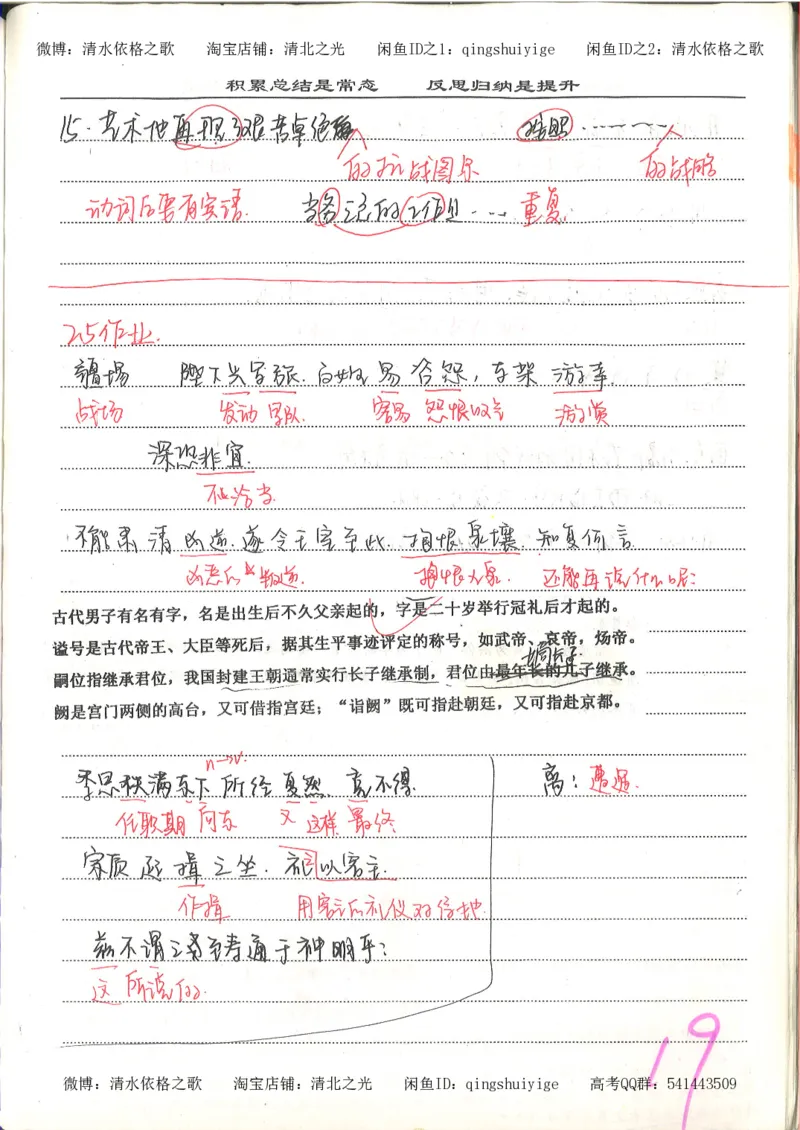 微博：清水依格之歌 淘宝店铺：清北之光 闲鱼ID之1：qingshuiyige 闲鱼ID之2：清水依格之歌
积累总结是常态 反思归纳是提升
15.艺术地再现了艰苦卓绝
的抗战图景 的战略
动词后要有宾语. 重复
2.5作业.
疆场 陛下兴军旅.百姓易咨怨,车架游幸.
战场 发动军队. 容易 怨恨叹气 游赏
深恐非宜.
不恰当.
不能肃清凶逆.遂令王室至此.抱恨泉壤.知复何言
凶恶的叛逆. 抱恨九泉. 还能再说什么呢?
古代男子有名有字，名是出生后不久父亲起的，字是二十岁举行冠礼后才起的。
谥号是古代帝王、大臣等死后，据其生平事迹评定的称号，如武帝、哀帝，炀帝。
嗣位指继承君位，我国封建王朝通常实行长子继承制，君位由最年长的儿子继承。
阙是宫门两侧的高台，又可借指宫廷；“诣阙”既可指赴朝廷，又可指赴京都。
n→v.
季思秩满东下所经 竟不得. 离: 遭遇.
任职期 向东 又 这样 最终
揖之坐. 以客主.
作揖 用客主的礼仪对待他.
兹不谓之孝至寿通于神明乎?
这 所说的.
19
微博：清水依格之歌 淘宝店铺：清北之光 闲鱼ID：qingshuiyige 高考QQ群：541443509